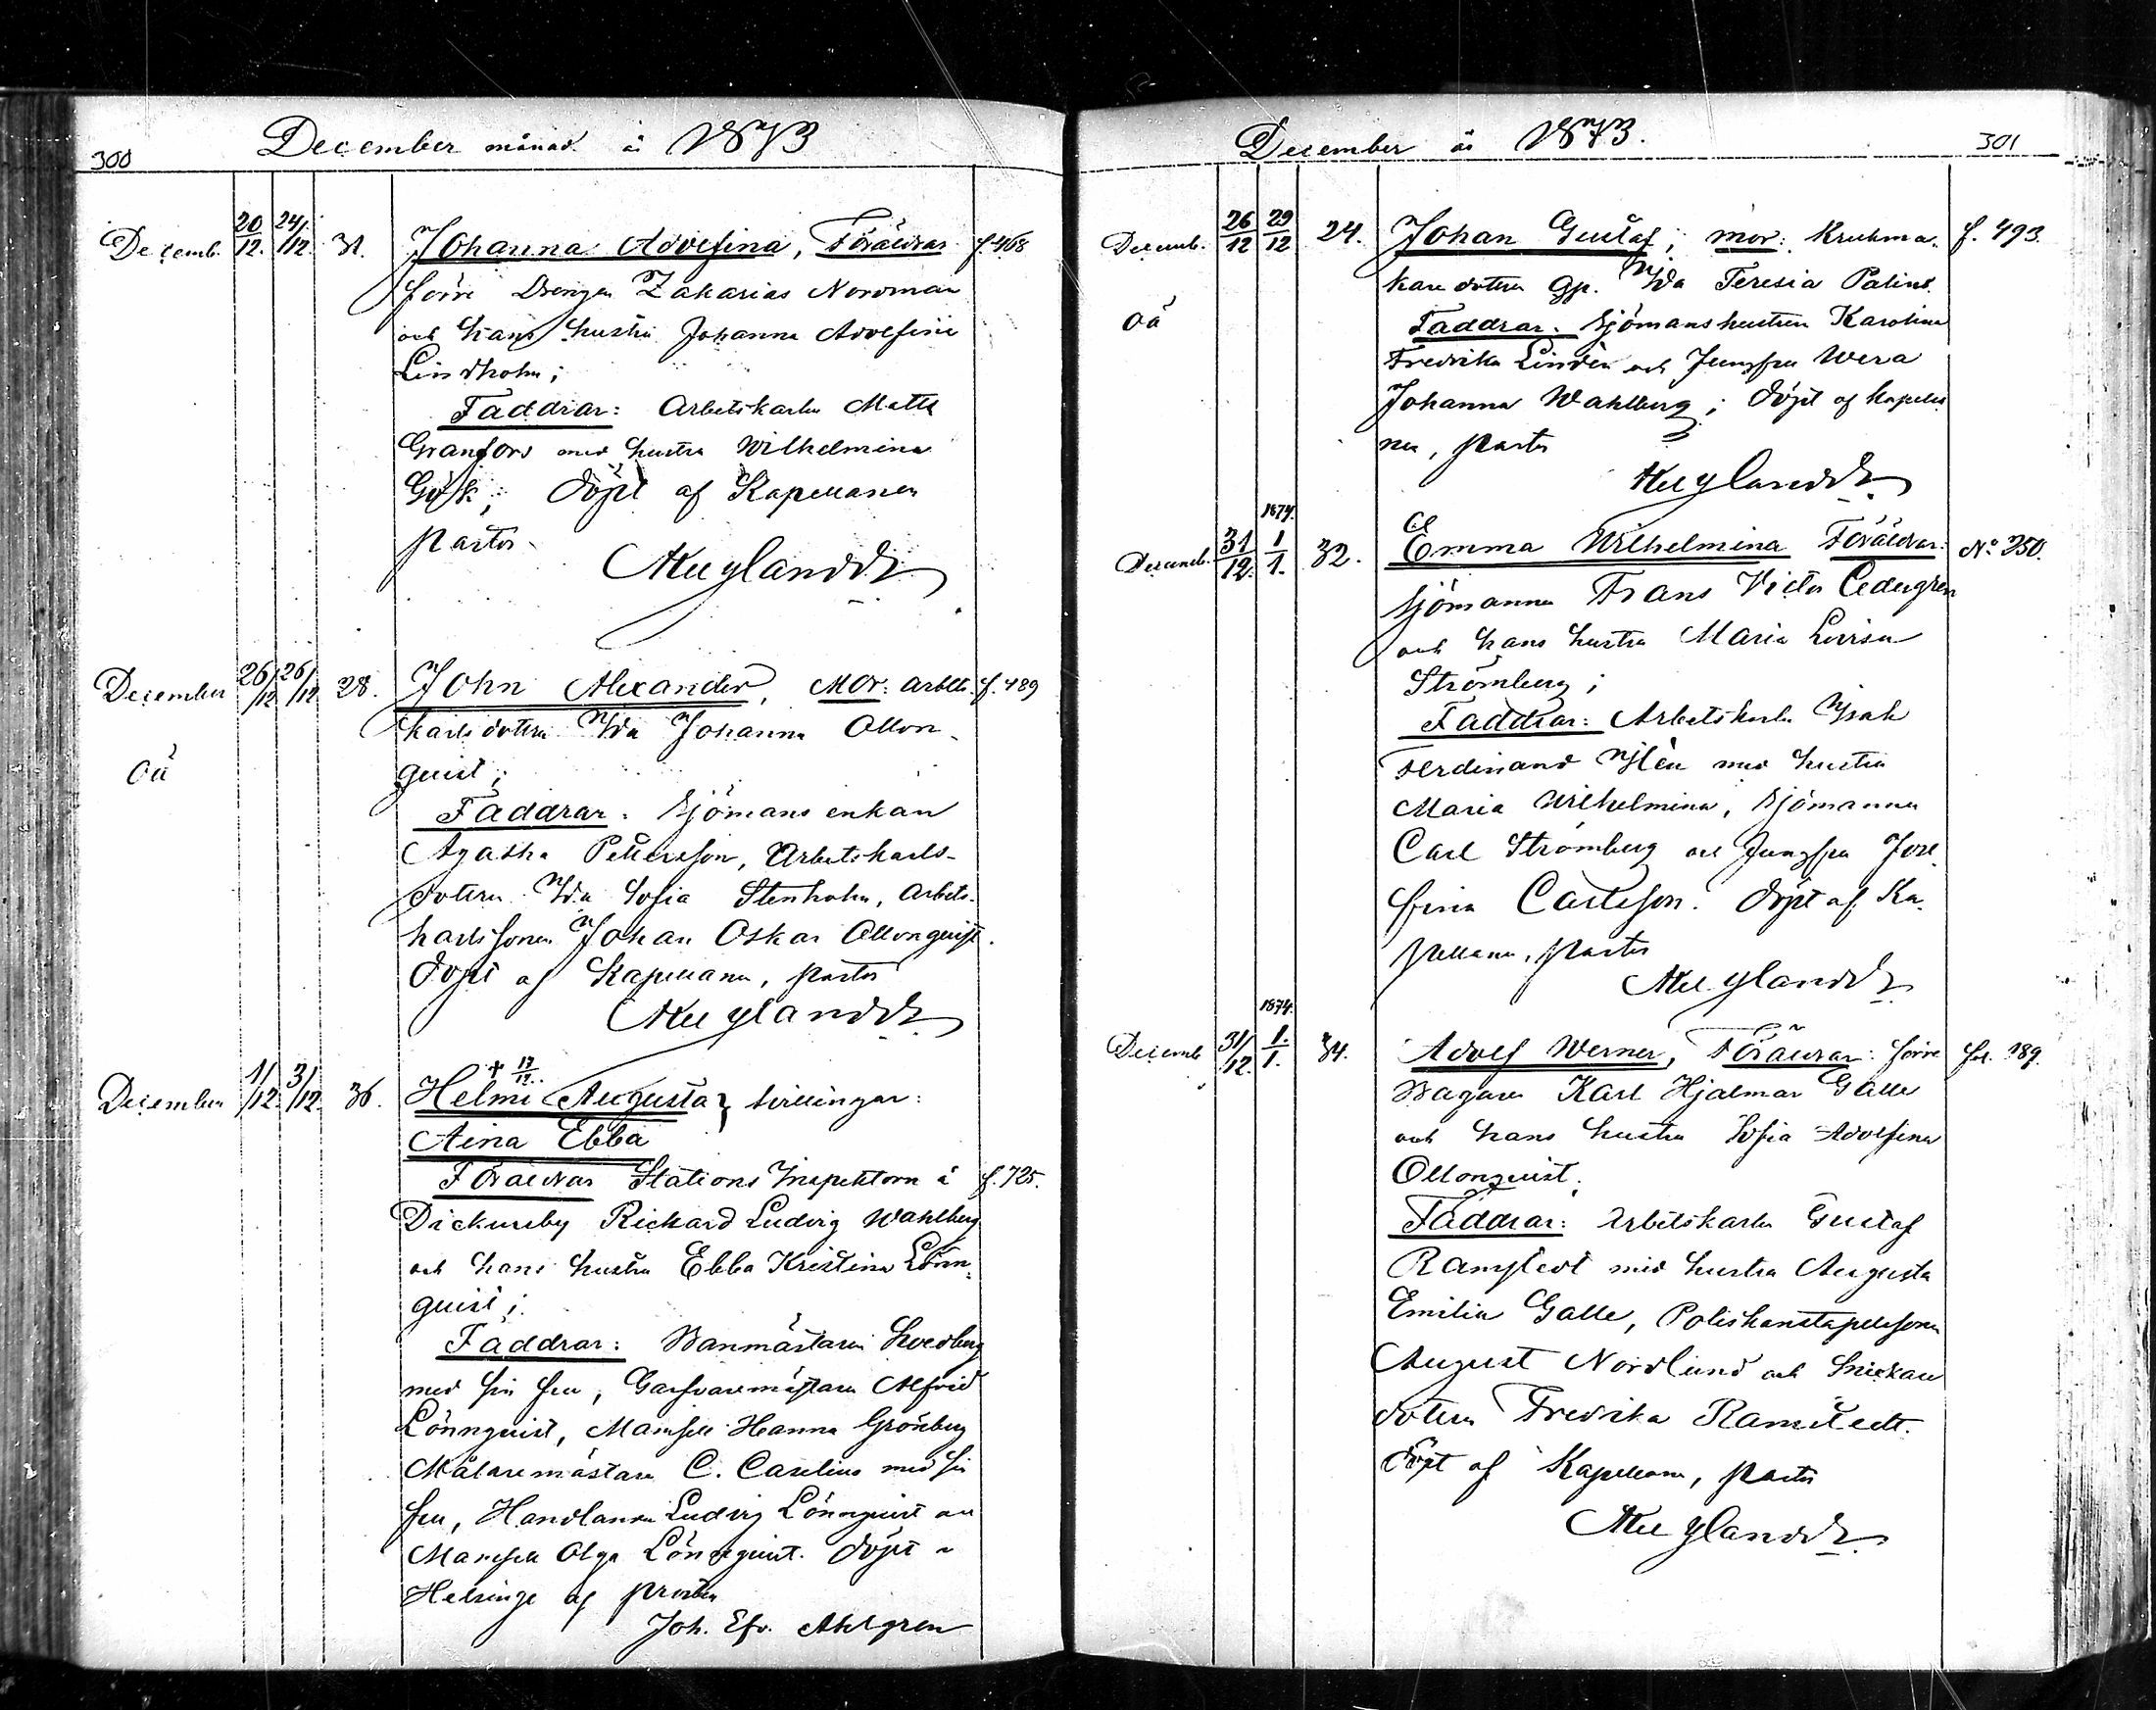 300 December månad. å 1873
Decemb. 20/12. 24/12. 31. Johanna Adolfina, Föräldrar f. 468
förre Drengen Zakarias Nordman
och hans hustru Johanna Adolfina
Lindholm;
Faddrar: Arbetskarlen Matts
Granfors med hustru Wilhelmina
Gök; döpt af Kapellanen
Pastor
December 26/12 26/12 28. John Alexander, Mor: arbets f. 489
karlsdottern Ida Johanna Ollon-
quist;
oä
Faddrar: Sjömans enkan
Agatha Pettersson, Arbetskarls-
dottern Ida Sofia Stenholm, Arbets-
karlssonen Johan Oskar Ollonquist.
döpt af Kapellanen, pastor
December 1/12. 3/12. 36. Helmi Augusta } tvillingar:
† 17/12.
Aina Ebba
Föräldrar Stations Inspektorn å f. 725.
Dickursby Rickard Ludvig Wahlberg
och hans hustru Ebba Kristina Lönn-
quist;
Faddrar: Banmästaren Svedberg
med sin fru, Garfvaremästaren Alfrid
Lönnquist, Mamsell Hanna Grönberg
Målaremästaren C. Caselius med sin
fru, Handlanden Ludvig Lönnquist och
Mamsell Olga Lönnquist. döpt i
Helsinge af prosten
Joh. Efr. Ahlgren
December år 1873. 301
Decemb. 26/12 29/12 24. Johan Gustaf; mor: Krukma- f. 493.
kare dottern Gp. Ida Teresia Palin
oä
Faddrar. Sjömanshustrun Karolina
Fredrika Lindén och Jungfru Wera
Johanna Wahlberg; döpt af kapella
nen, pastor
1874.
Decemb. 31/12. 1/1. 32. Emma Wilhelmina Föräldrar: No 250.
Sjömannen Frans Victor Cedergren
och hans hustru Maria Lovisa
Strömberg;
Faddrar: Arbetskarlen Isak
Ferdinand med hustru
Maria Wilhelmina, Sjömannen
Carl Strömberg och Jungfru Jose-
fina Carlsson. döpt af Ka-
pellanen, pastor
1874.
Decemb 31/12. 1./1. 34. Adolf Werner, Föräldrar: förre fol. 189.
Bagaren Karl Hjalmar Galle
och hans hustru Sofia Adolfina
Ollonquist.
Faddrar: Arbetskarlen Gustaf
Ramstedt med hustru Augusta
Emilia Galle, Poliskonstapelssonen
August Nordlund och Snickare
dottern Fredrika Ramstedt.
döpt af Kapellanen, pastor